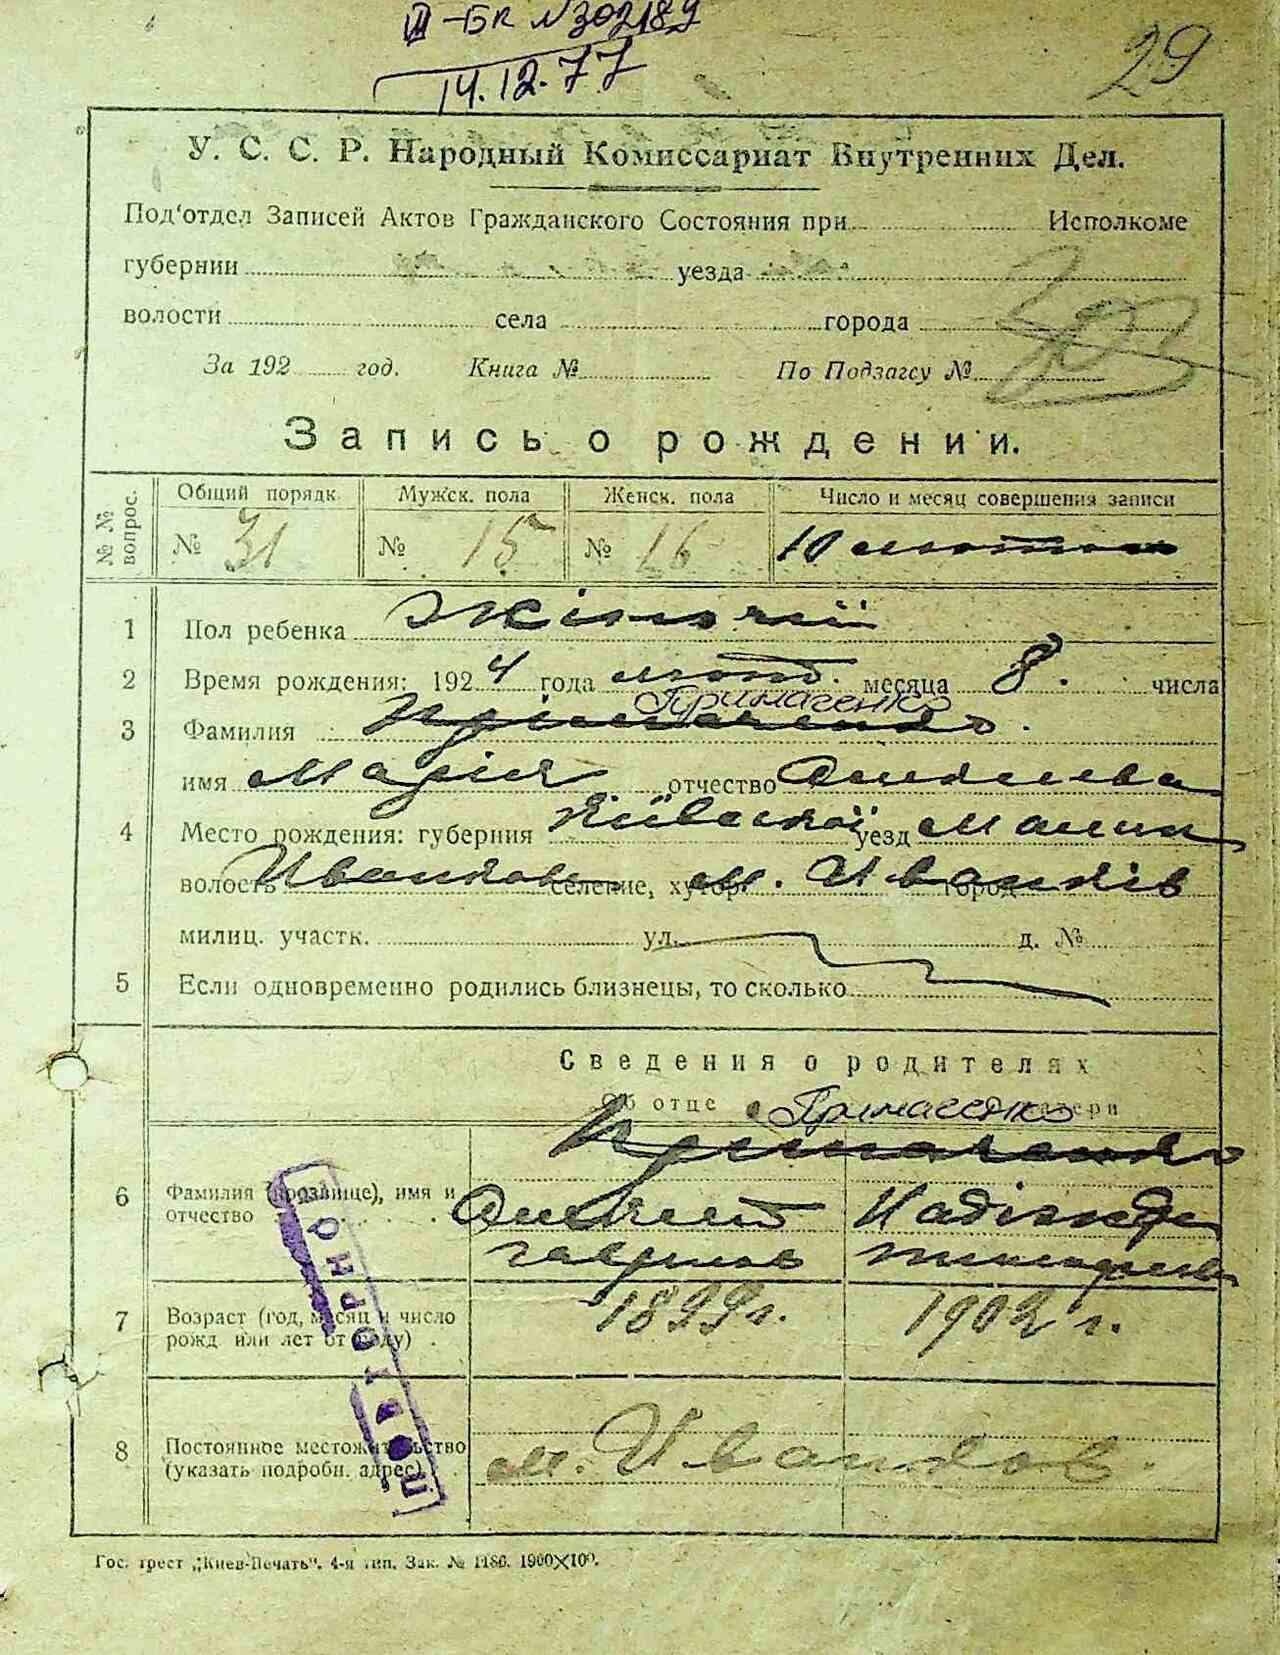 III-БК N 302189
14.12.77
29
У. С. С. Р. Народный Комиссариат Внутренних Дел.
Под'отдел Записей Актов Гражданского Состояния при Исполкоме
губернии уезда
волости села города
За 192 год. Книга № По Подзагсу №
Запись о рождении.
№ № вопрос.
Общий порядк. Мужск. пола Женск. пола Число и месяц совершения записи
№ 31 № 15 № 16 10 лютого
1 Пол ребенка Жіночий
2 Время рождения: 1924 года лют. месяца 8. числа
Примаченко
3 Фамилия Приначенко.
имя Марія отчество
4 Место рождения: губерния Київської уезд
волость Иванков селение, хутор м. Иванків город
милиц. участк. ул. д. №
5 Если одновременно родились близнецы, то сколько
Сведения о родителях
Об отце Примаченко О матери
6 Фамилия (прозвище), имя и отчество
Гаврилов
7 Возраст (год, месяц и число рожд или лет от роду) 1899 г. 1902 г.
8 Постоянное местожительство (указать подробн. адрес) м. Иванков.
ПОВТОРНО
Гос. трест „Киев-Печать". 4-я тип. Зак. № 1186. 1900×100.